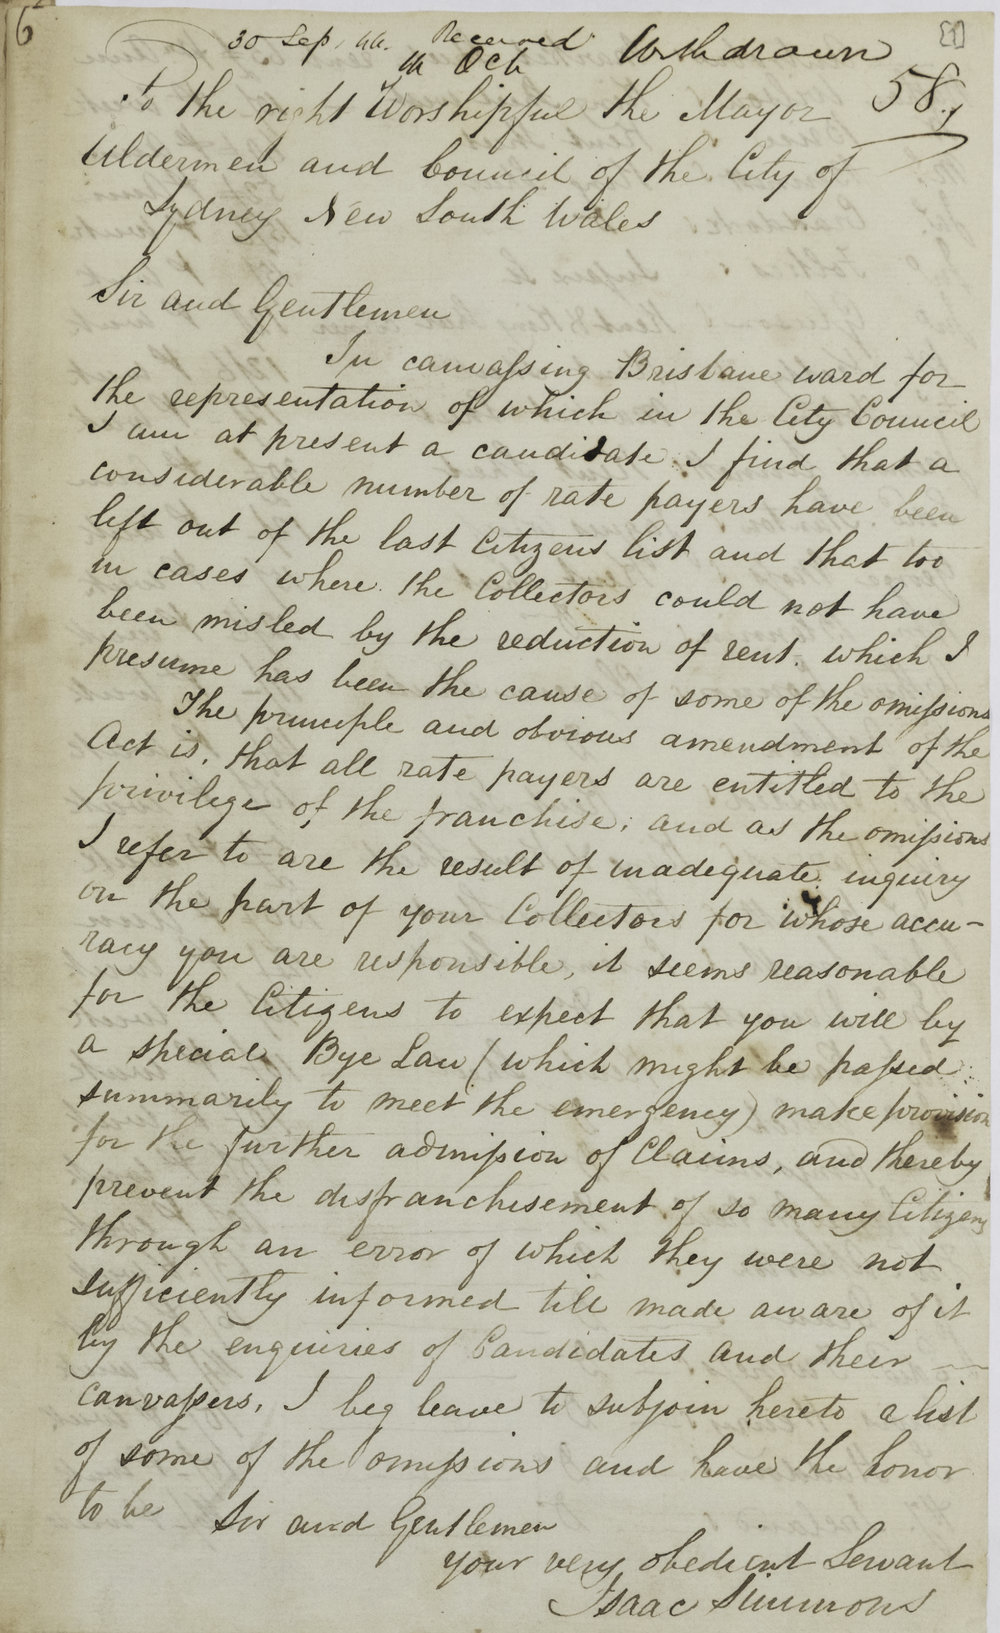 6
[1]
30 Sep. 44. Received Withdrawn
Oct
58.
To the right Worshipful the Mayor
Aldermen and Council of the City of
Sydney New South Wales
Sir and Gentlemen
In canvassing Brisbane ward for
the representation of which in the City Council
I am at present a candidate. I find that a
considerable number of rate payers have been
left out of the last Citizens list and that too
in cases where the Collectors could not have
been misled by the reduction of rent. which I
presume has been the cause of some of the omissions
The principle and obvious amendment of the
Act is, that all rate payers are entitled to the
privilege of the franchise; and as the omissions
I refer to are the result of inadequate inquiry
on the part of your Collectors for whose accu-
racy you are responsible, it seems reasonable
for the Citizens to expect that you will by
a special Bye Law (which might be passed
summarily to meet the emergency) make provision
for the further admission of Claims, and thereby
prevent the disfranchisement of so many Citizens
through an error of which they were not
sufficiently informed till made aware of it
by the enquiries of Candidates and their
canvassers. I beg leave to subjoin hereto a list
of some of the omissions and have the honor
to be Sir and Gentlemen
your very obedient Servant
Isaac Simmons